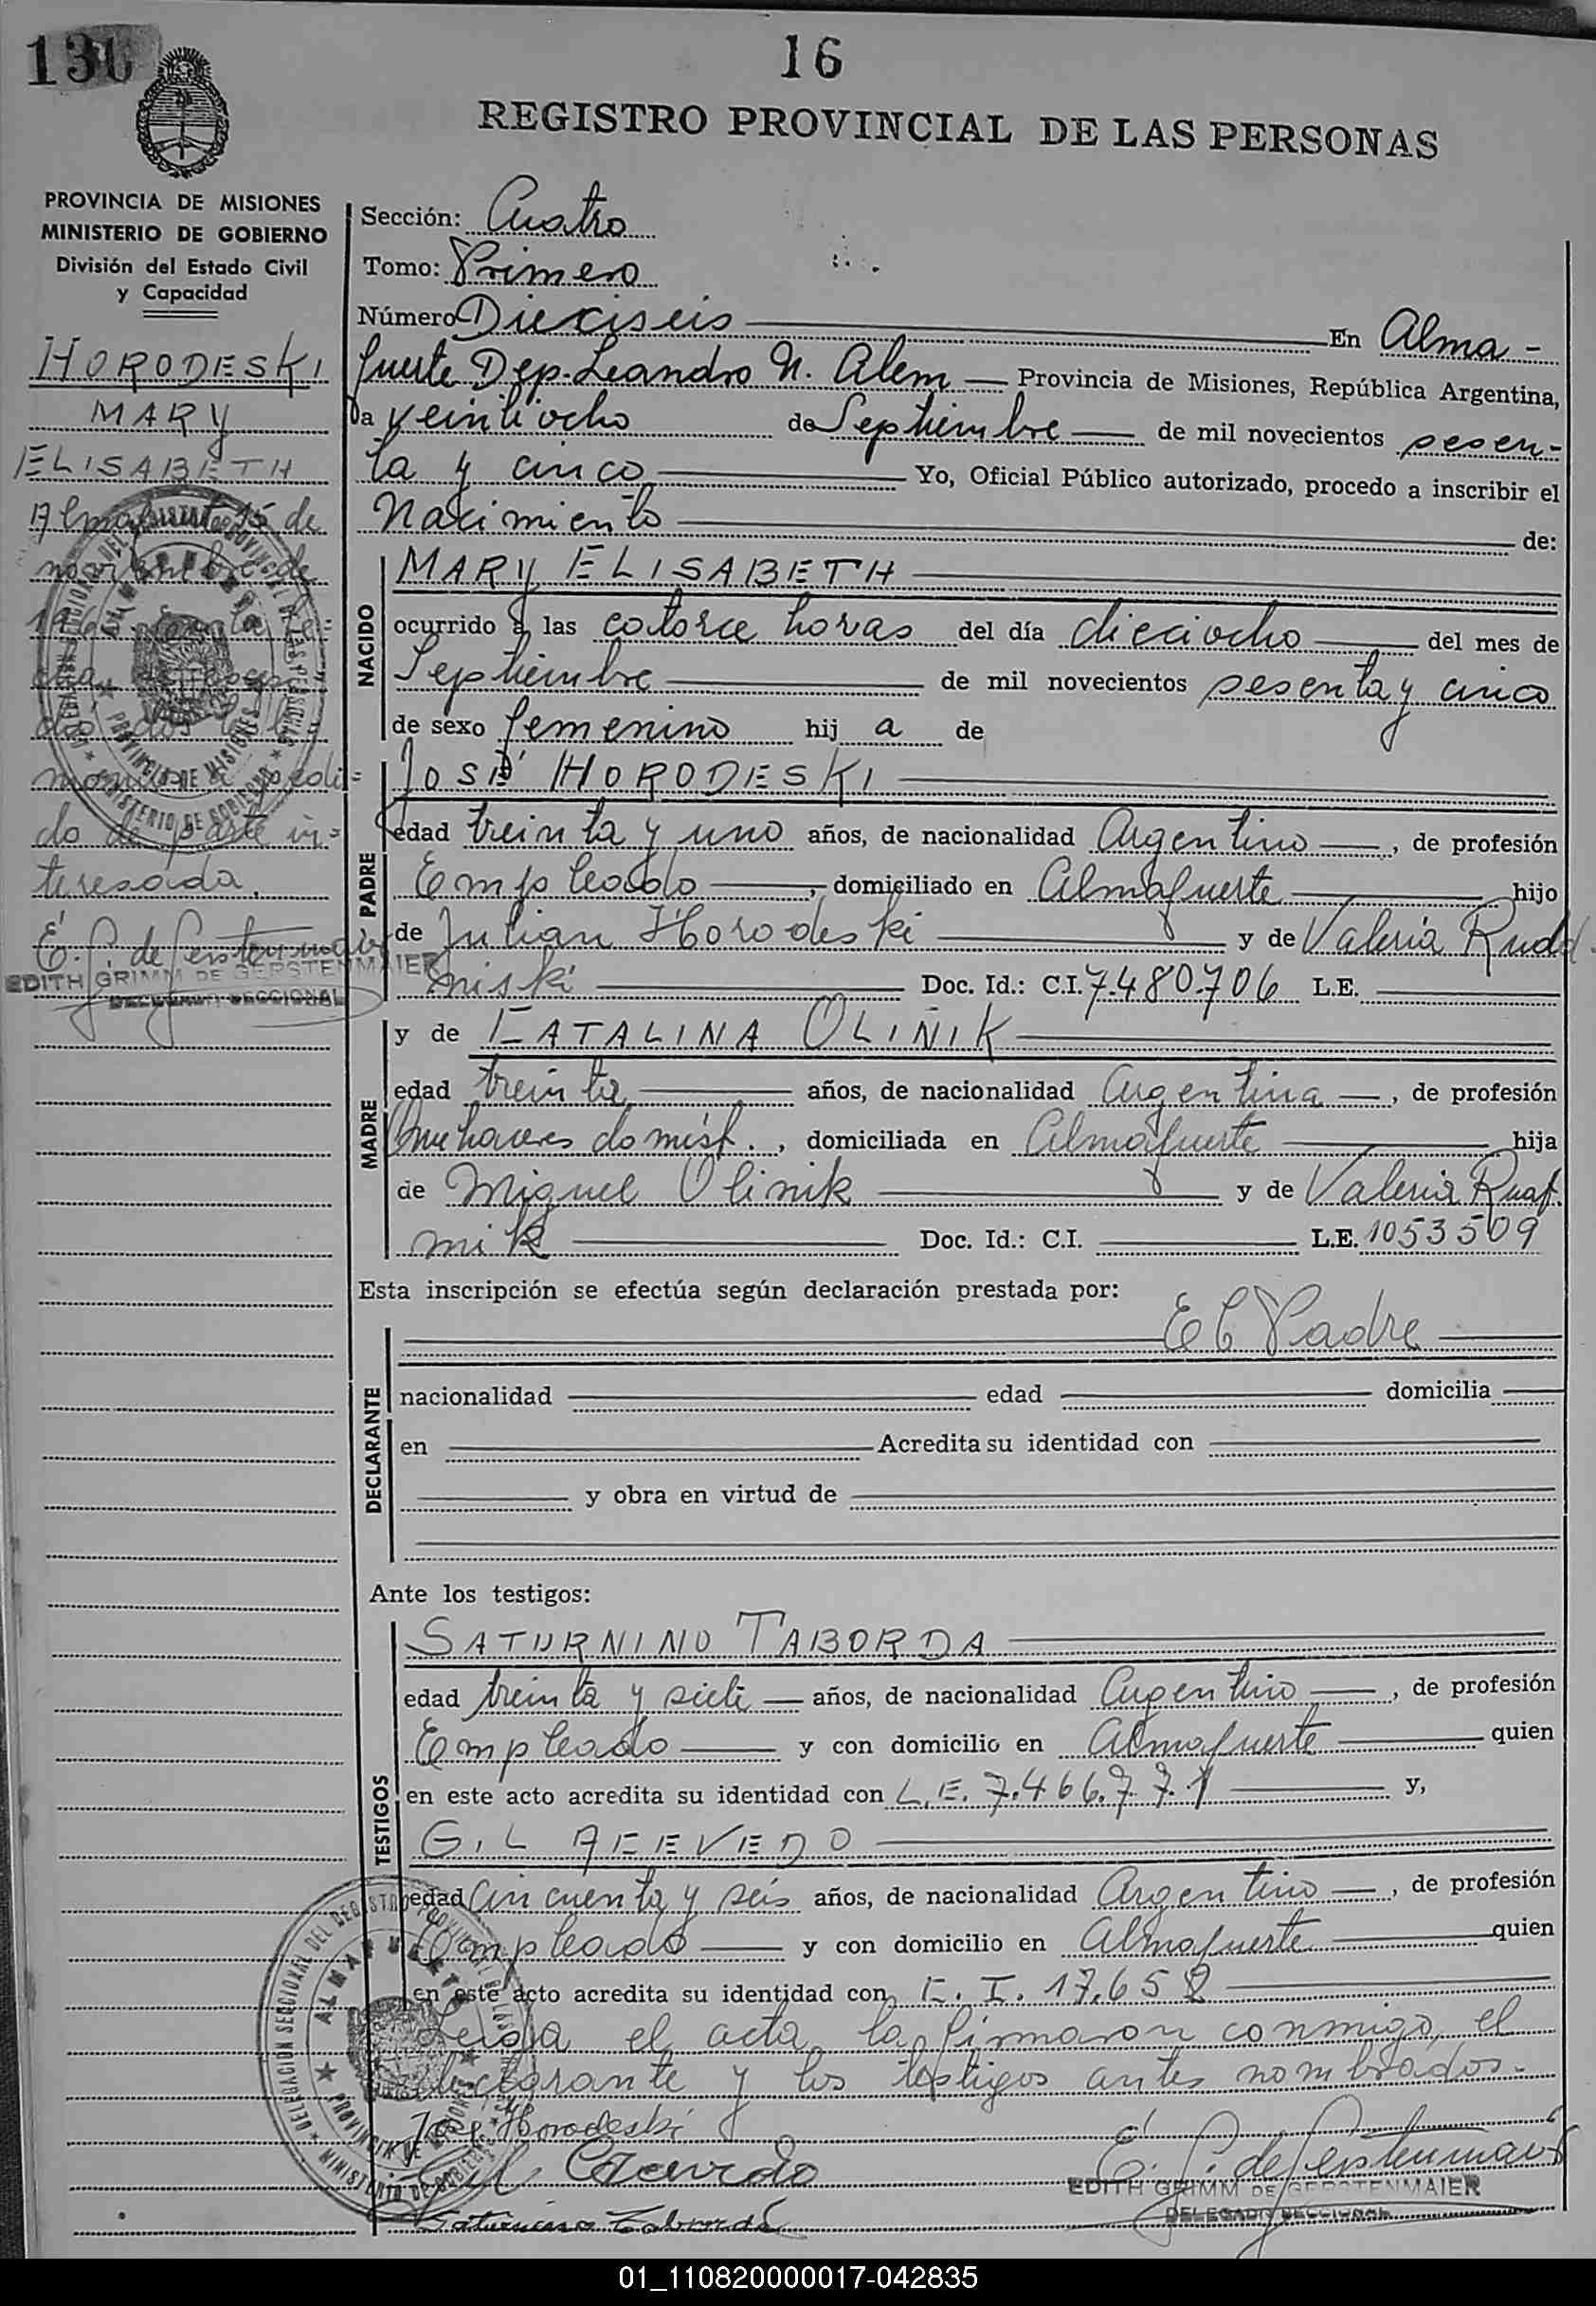 16
REGISTRO PROVINCIAL DE LAS PERSONAS
PROVINCIA DE MISIONES
MINISTERIO DE GOBIERNO
División del Estado Civil
y Capacidad
HORODESKI
MARY
ELISABETH
Almafuerte 15 de
noviembre de
do de parte in=
teresada.
E. G. de Gerstenmaier
EDITH GRIMM DE GERSTENMAIER
DELEGADO SECCIONAL
Sección: Cuatro
Tomo: Primero
Número Dieciseis En Alma-
fuerte Dep. Leandro N. Alem Provincia de Misiones, República Argentina,
a veintiocho de Septiembre de mil novecientos sesen-
ta y cinco Yo, Oficial Público autorizado, procedo a inscribir el
Nacimiento de:
NACIDO
MARY ELISABETH
ocurrido a las catorce horas del día dieciocho del mes de
Septiembre de mil novecientos sesenta y cinco
de sexo femenino hij a de
PADRE
JOSÉ HORODESKI
edad treinta y uno años, de nacionalidad Argentino, de profesión
Empleado, domiciliado en Almafuerte hijo
de Julian Horodeski y de Valeria Rud
niski Doc. Id.: C.I. 7.480.706 L.E.
MADRE
y de CATALINA OLIÑIK
edad treinta años, de nacionalidad Argentina, de profesión
Quehaceres domést., domiciliada en Almafuerte hija
de Miguel Olinik y de Valeria
nik Doc. Id.: C.I. L.E. 1053509
Esta inscripción se efectúa según declaración prestada por:
El Padre
DECLARANTE
nacionalidad edad domicilia
en Acredita su identidad con
y obra en virtud de
Ante los testigos:
TESTIGOS
SATURNINO TABORDA
edad treinta y siete años, de nacionalidad Argentino, de profesión
Empleado y con domicilio en Almafuerte quien
en este acto acredita su identidad con L.E. 7.466.771 y,
GIL ACEVEDO
edad cincuenta y seis años, de nacionalidad Argentino, de profesión
Empleado y con domicilio en Almafuerte quien
en este acto acredita su identidad con C.I. 17.652
Leida el acta la firmaron conmigo, el
declarante y los testigos antes nombrados.-
José Horodeski
Gil Acevedo
Saturnino Taborda
E. G. de Gerstenmaier
EDITH GRIMM DE GERSTENMAIER
DELEGADO SECCIONAL
01_110820000017-042835